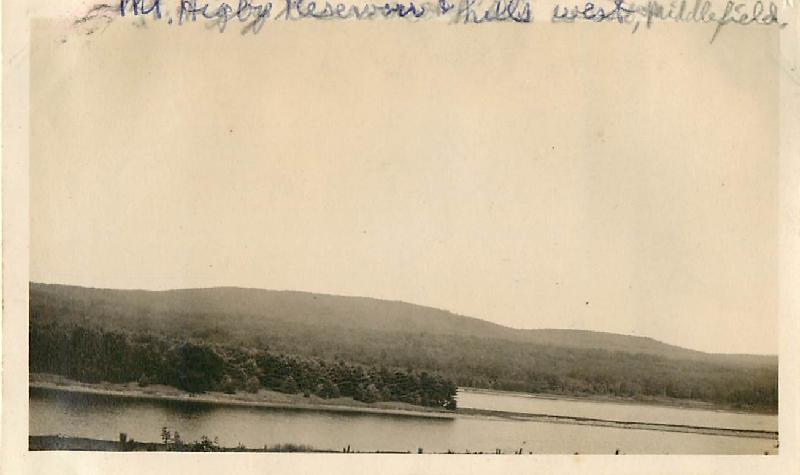 Mt. Higby Reservoir & hills west, Middlefield.